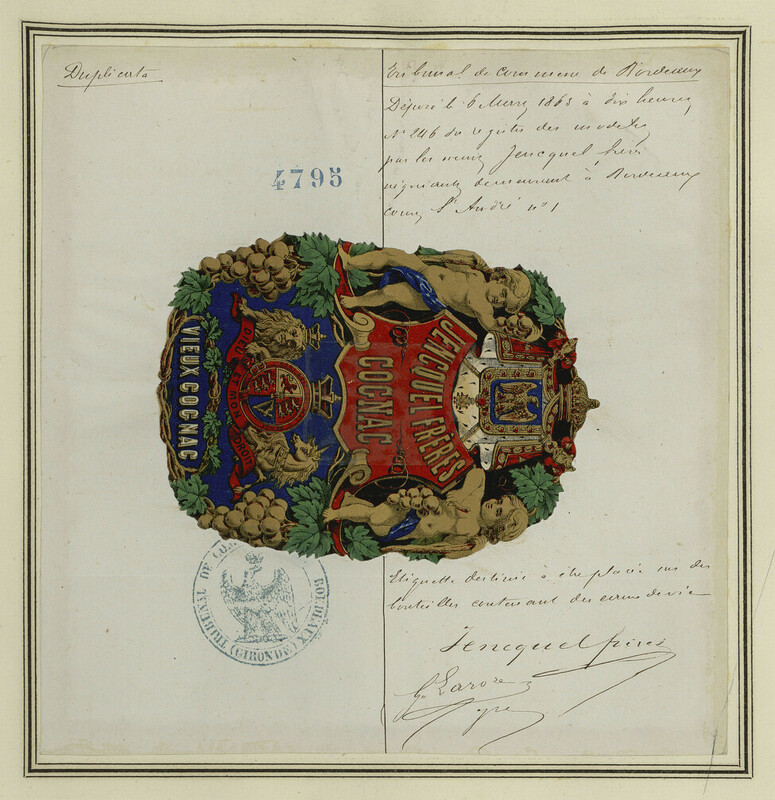 Duplicata
Tribunal de Commerce de Bordeaux
Déposé le 6 Mars 1863 à dix heures,
N° 246 du registre des modèles
par les sieurs Jencquel frères
négociants demeurant à Bordeaux
cours St André n° 1
4795
JENCQUEL FRERES
COGNAC
DIEU ET MON DROIT
VIEUX COGNAC
TRIBUNAL DE COM
BORDEAUX
(GIRONDE)
Etiquette destinée à être placée sur des
bouteilles contenant des eaux de vie
Jencquel frères
G. Laroze